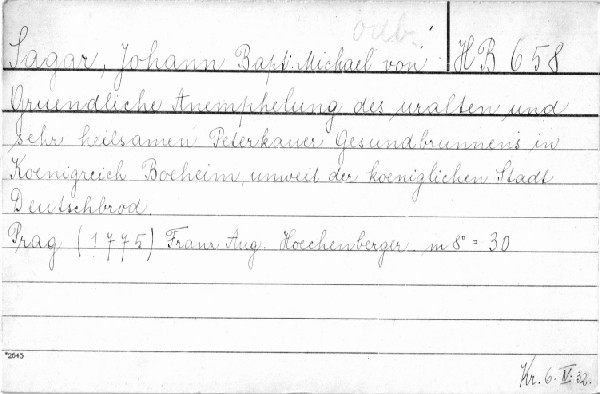 odb.
Sagar, Johann Bapt. Michael von HB 658
Gruendliche Anempfelung des uralten und
sehr heilsamen Peterkauer Gesundbrunnens in
Koenigreich Boeheim, unweit der koeniglichen Stadt
Deutschbrod.
Prag (1775) Franz Aug. Hoechenberger m 8° = 30
*2643
Kr. 6. IV. 32.